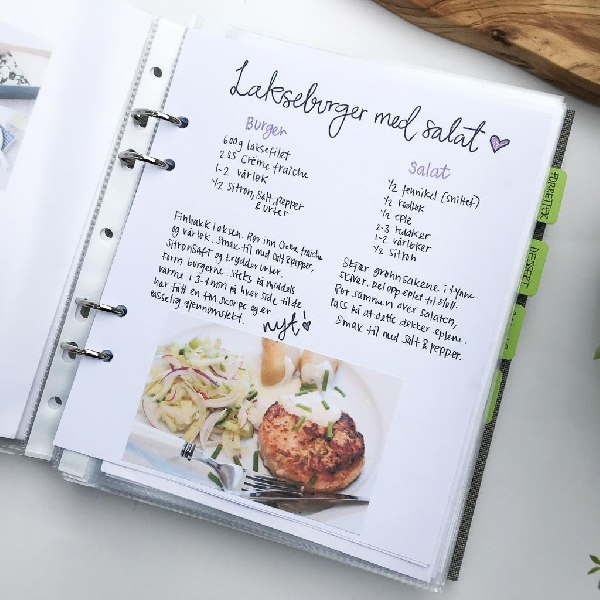 Lakseburger med salat
Burger
600g laksefilet
2 ss Crème fraiche
1-2 vårløk
1/2 sitron, salt, pepper
& urter
Finhakk laksen. Rør inn Creme fraiche
og vårløk. Smak til med salt & pepper,
sitronsaft og krydderurter.
Form burgerne. Stek på middels
varme i 3-4 min på hver side til de
har fått en fin skorpe og er
passelig gjennomstekt.
nyt!
Salat
1/2 fennikel (snittet)
1/2 rødløk
1/2 eple
2-3
1-2 vårløker
1/2 sitron
Skjær grønnsakene i tynne
skiver. Del opp eplet til slutt.
Rør sammen over salaten,
pass på at dette dekker eplene.
Smak til med salt & pepper.
FORRETTER
DESSERT